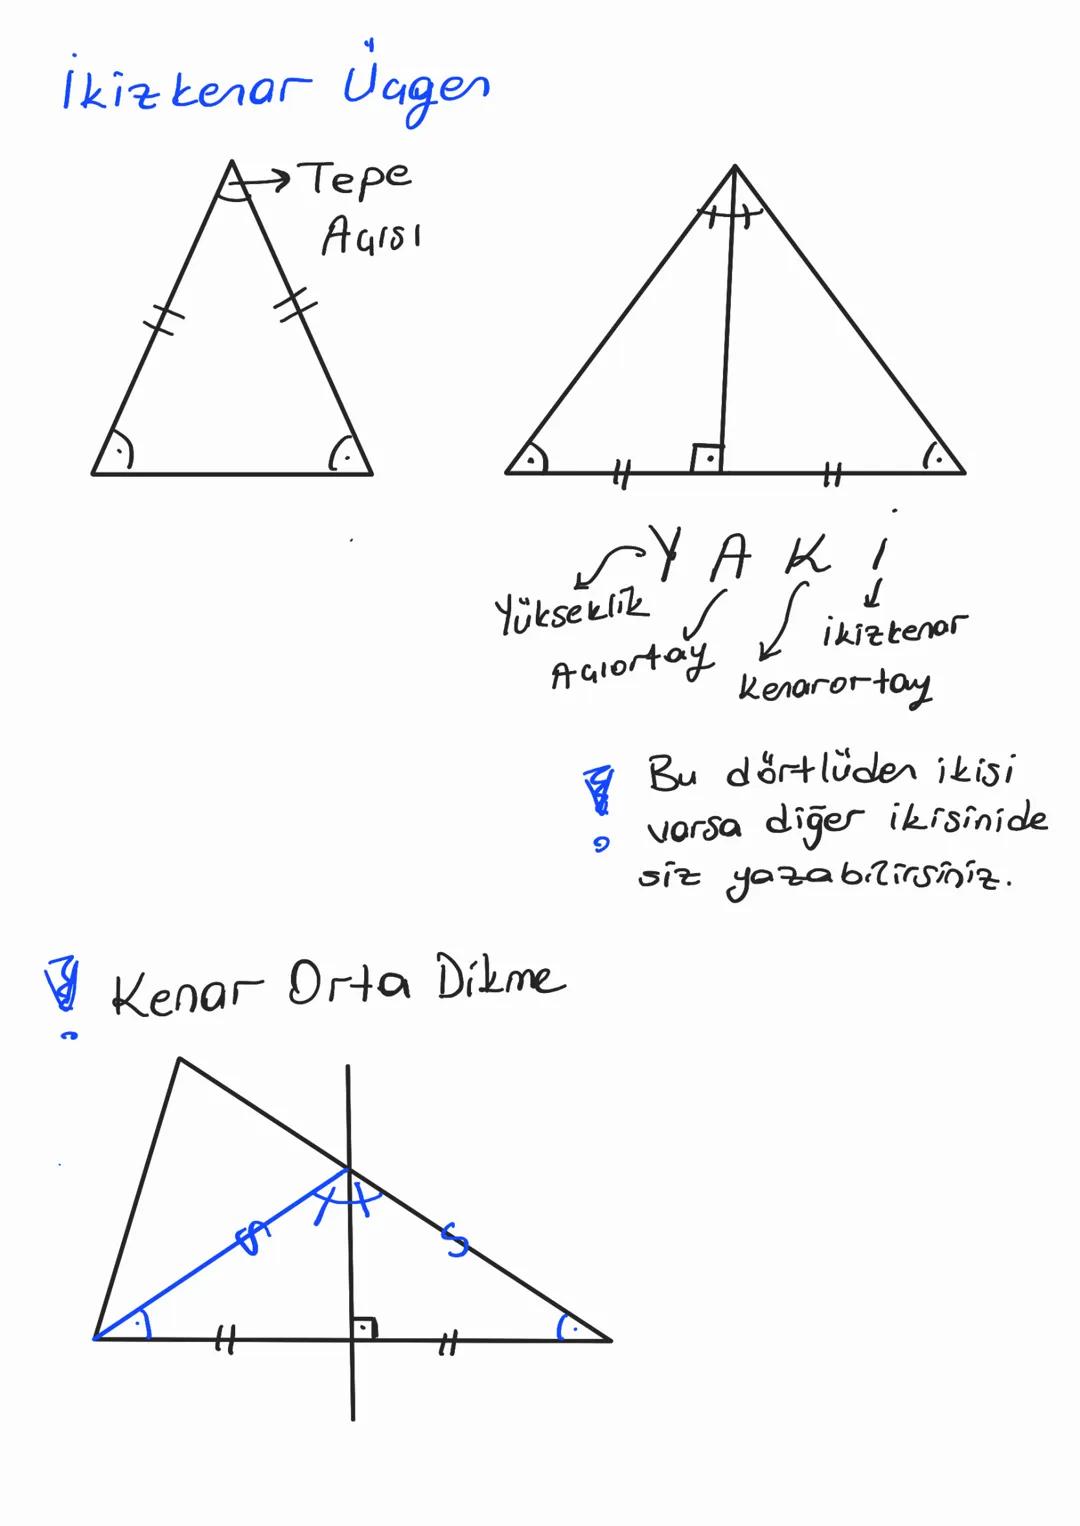 İkizkenar Üçgen
Tepe
Açısı
Y A K İ
Yükseklik
Açıortay
Kenarortay
ikizkenar
! Bu dörtlüden ikisi
varsa diğer ikisinide
siz yazabilirsiniz.
! Kenar Orta Dikme